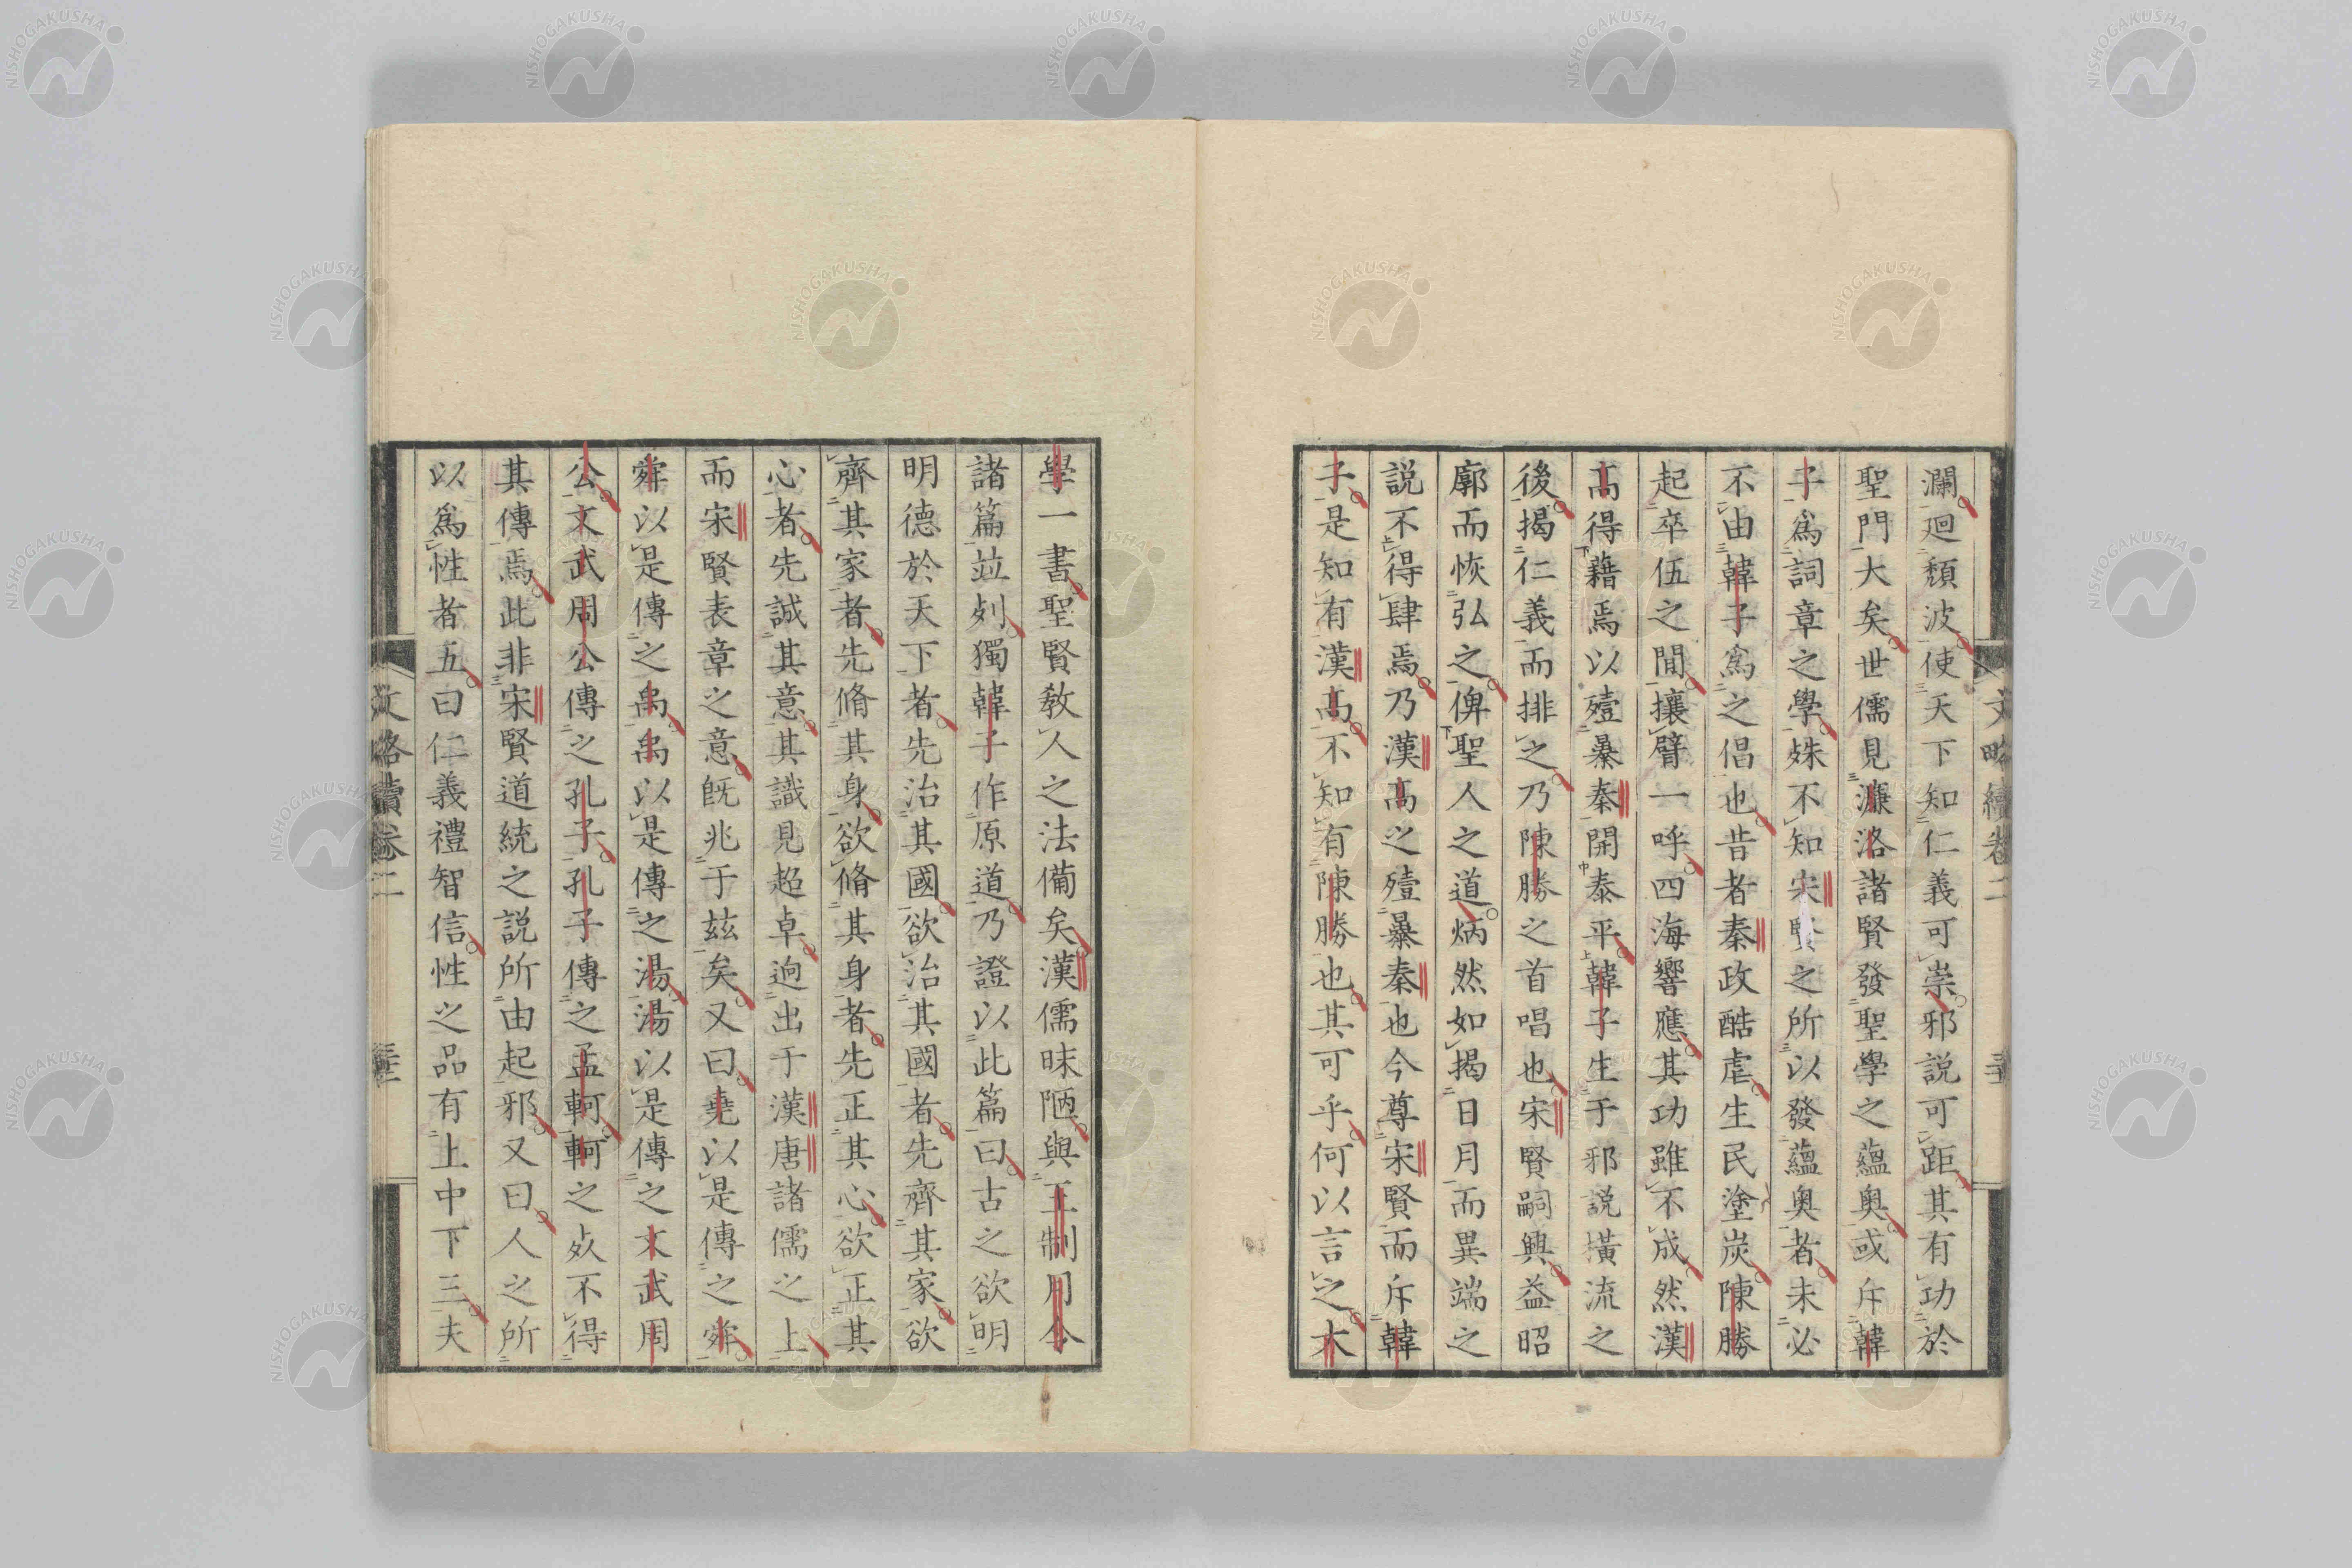 瀾廻頽波使天下知仁義可崇邪説可距其有功於
聖門大矣世儒見濂洛諸賢發聖學之蘊奥或斥韓
子爲詞章之學殊不知宋賢之所以發蘊奥者未必
不由韓子爲之倡也昔者秦政酷虐生民塗炭陳勝
起卒伍之間攘臂一呼四海響應其功雖不成然漢
高得藉焉以殪暴秦開泰平韓子生于邪説横流之
後揭仁義而排之乃陳勝之首唱也宋賢嗣興益昭
廓而恢弘之俾聖人之道炳然如揭日月而異端之
説不得肆焉乃漢高之殪暴秦也今尊宋賢而斥韓
子是知有漢高不知有陳勝也其可乎何以言之大
學一書聖賢教人之法備矣漢儒昧陋與王制月令
諸篇竝列獨韓子作原道乃證以此篇曰古之欲明
明德於天下者先治其國欲治其國者先齊其家欲
齊其家者先脩其身欲脩其身者先正其心欲正其
心者先誠其意其識見超卓逈出于漢唐諸儒之上
而宋賢表章之意既兆于茲矣又曰堯以是傳之舜
舜以是傳之禹禹以是傳之湯湯以是傳之文武周
公文武周公傳之孔子孔子傳之孟軻軻之死不得
其傳焉此非宋賢道統之説所由起邪又曰人之所
以爲性者五曰仁義禮智信性之品有上中下三夫
文略續卷二
NISHOGAKUSHA